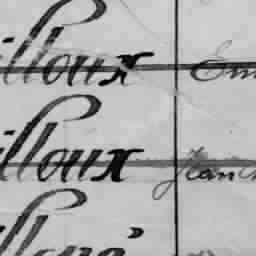 illoux Em
illoux Jean
illoué